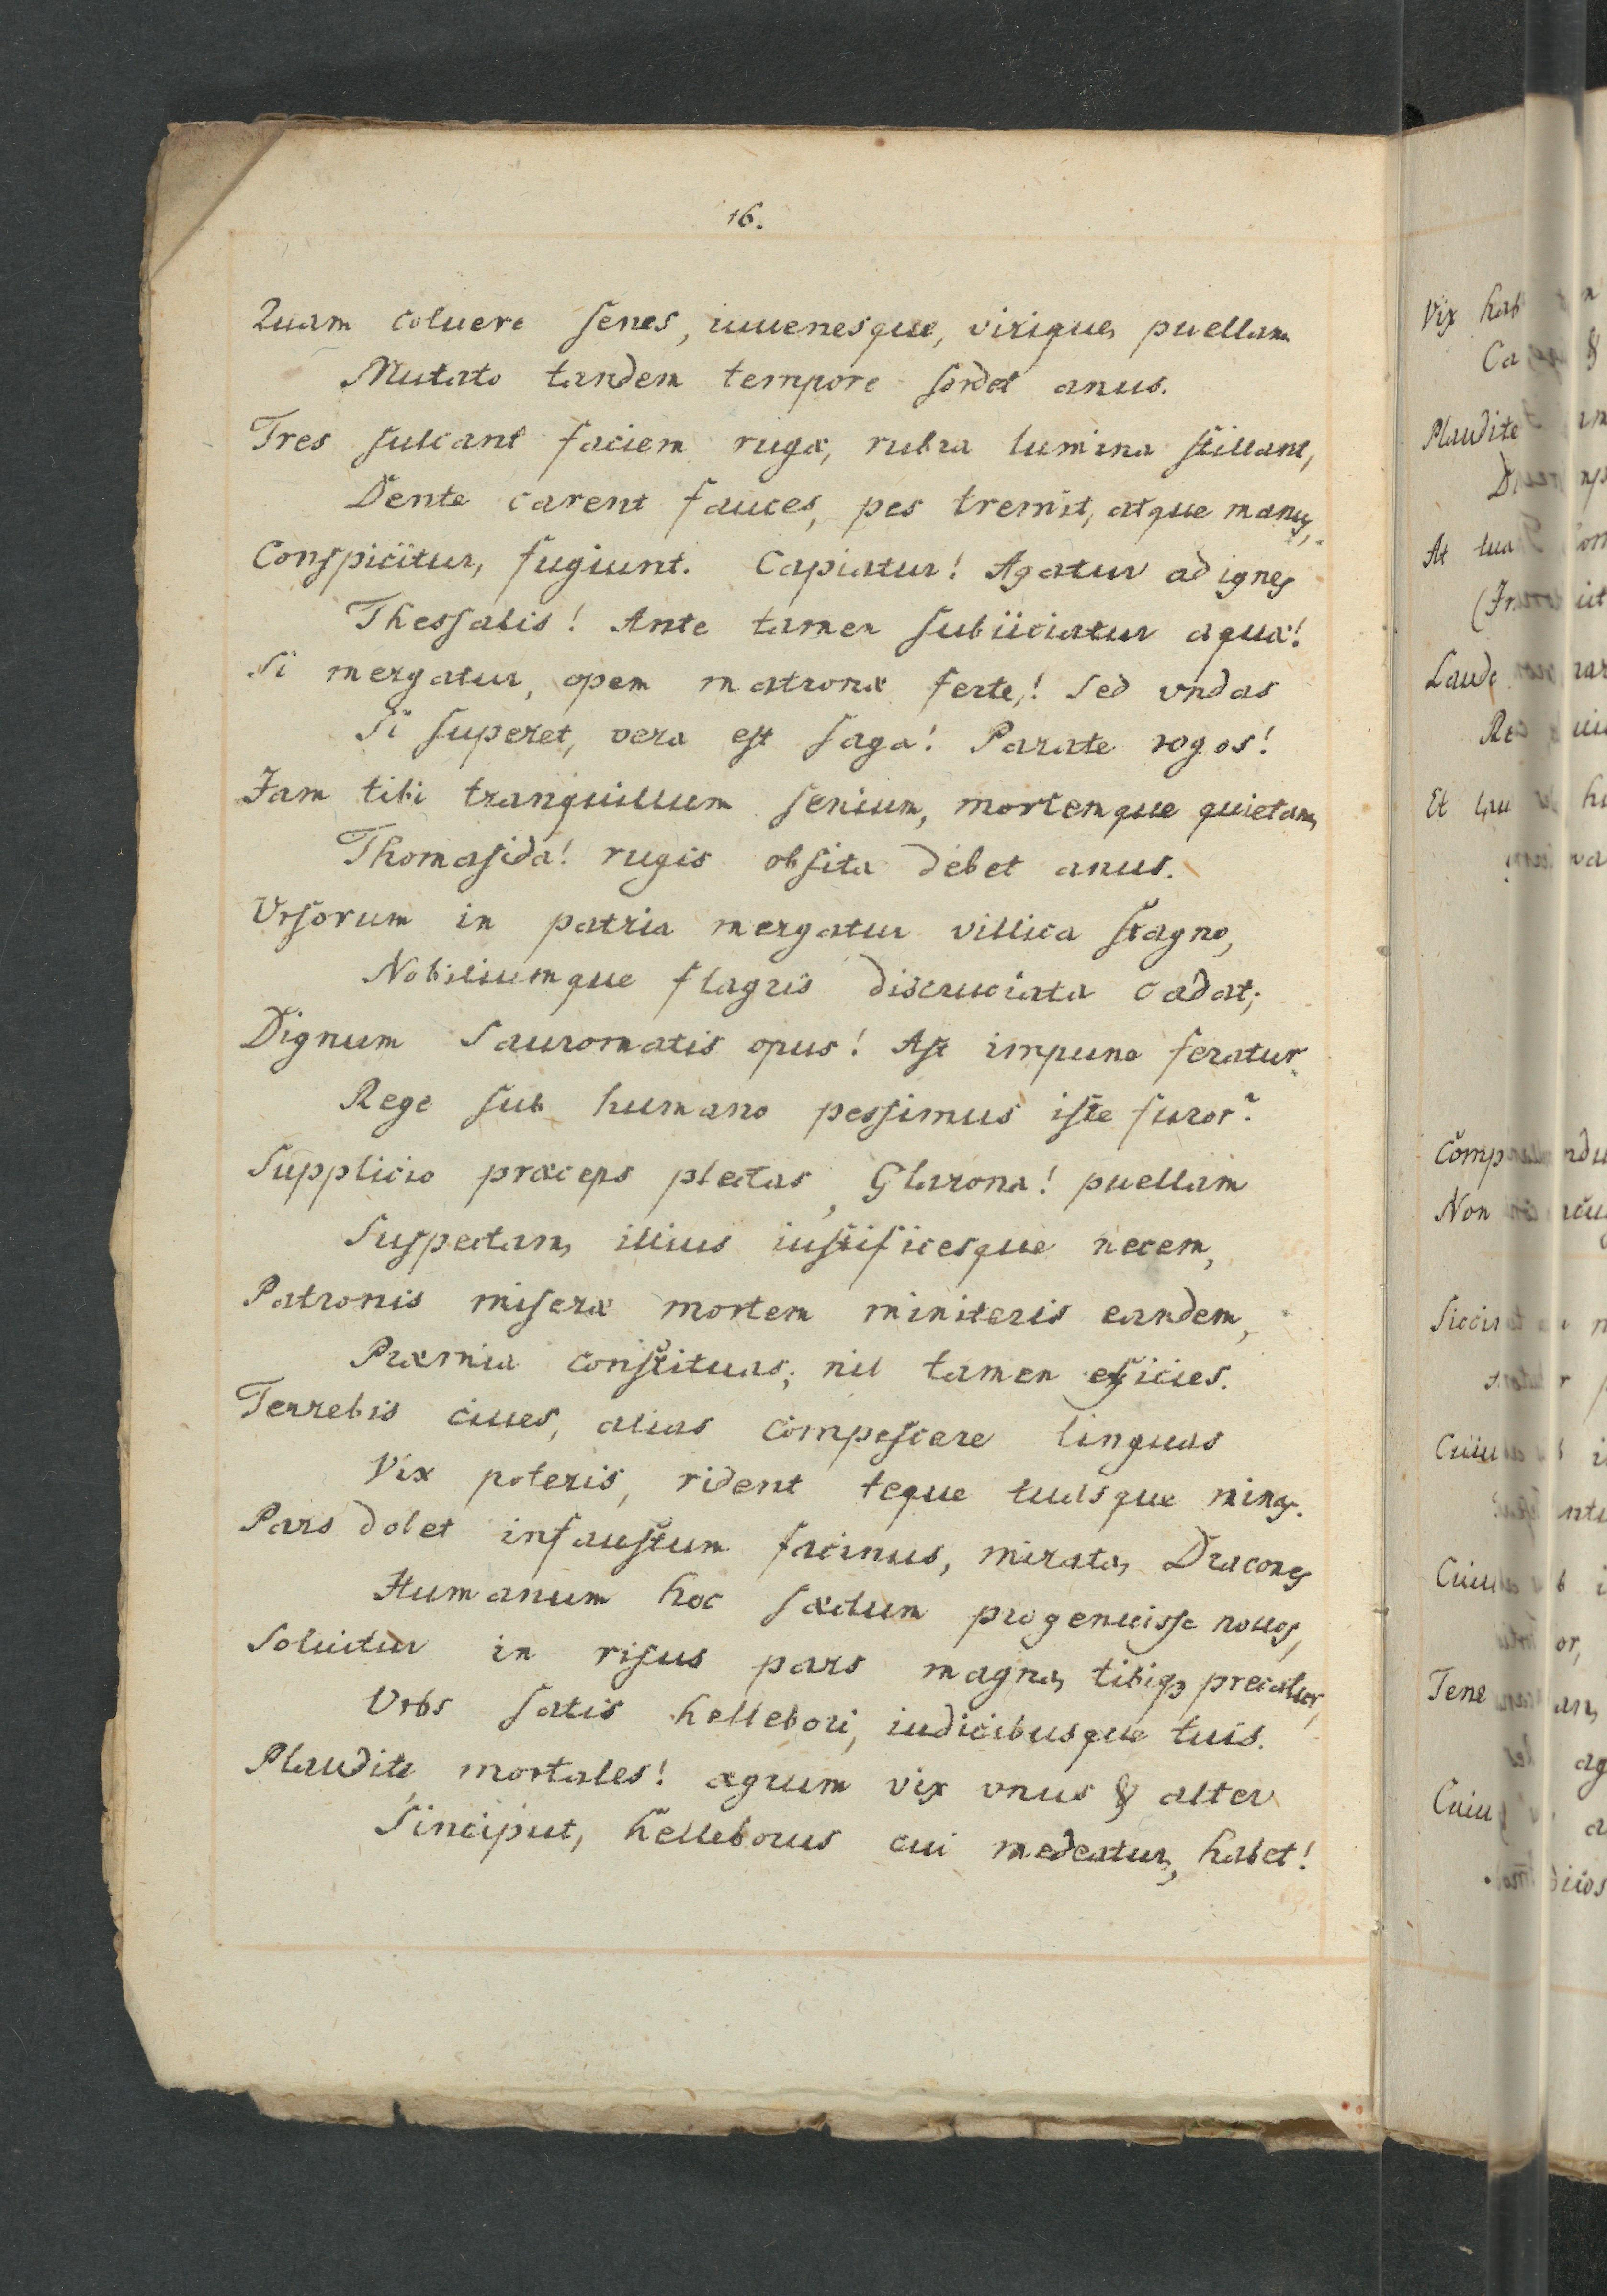 16.
Quam coluere senes, iuuenesque, virique, puellam
Mutato tandem tempore sordet anus.
Tres sulcant faciem rugæ, rubra lumina stillant,
Dente carent fauces, pes tremit, atque manus,
Conspicitur, fugiunt. Capiatur! Agatur ad ignes
Thessalis! Ante tamen subiiciatur aquæ!
Si mergatur, opem matronæ ferte,! Sed vndas
Si superet, vera est saga! Parate rogos!
Jam tibi tranquillum senium, mortemque quietam,
Thomasida! rugis obsita debet anus.
Vrsorum in patria mergatur villica stagno,
Nobiliumque flagris discruciata cadat;
Dignum Sauromatis opus! Ast impune feratur
Rege sub humano pessimus iste furor?
Supplicio præceps plectas, Glarona! puellam
Suspectam, illius iustificesque necem,
Patronis miseræ mortem miniteris eandem,
Præmia constituas; nil tamen efficies.
Terrebis ciues, alias compescere linguas
Vix poteris, rident teque tuasque minas.
Pars dolet infaustum facinus, mirata, Dracones
Humanum hoc sæclum progenuisse nouos,
Soluitur in risus pars magna, tibiqȝ precatur,
Vrbs satis hellebori, iudicibusque tuis.
Plaudite, mortales! ægrum vix vnus & alter
Sinciput, helleborus cui medeatur, habet!
Vix
Plaudite
At tua
Et
Non